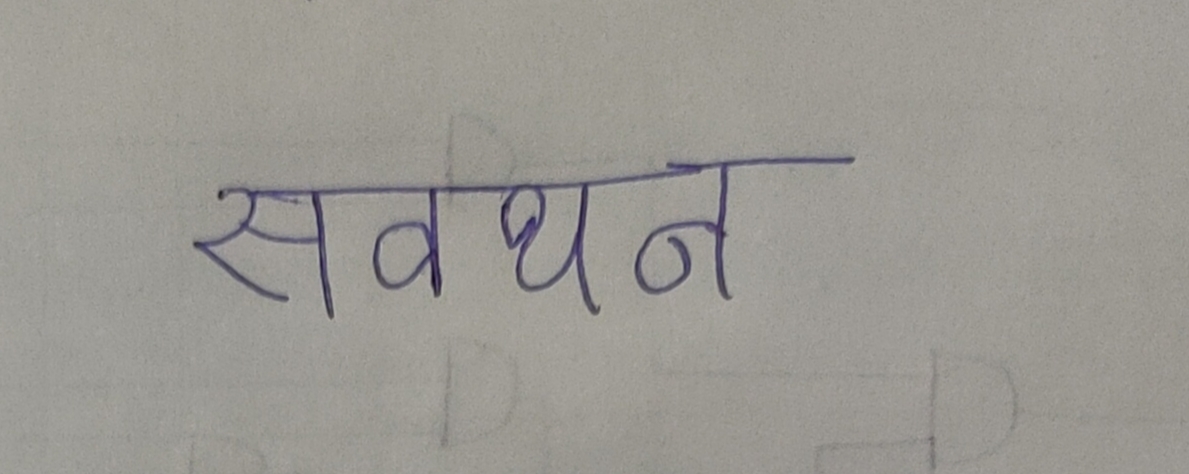 सवथन